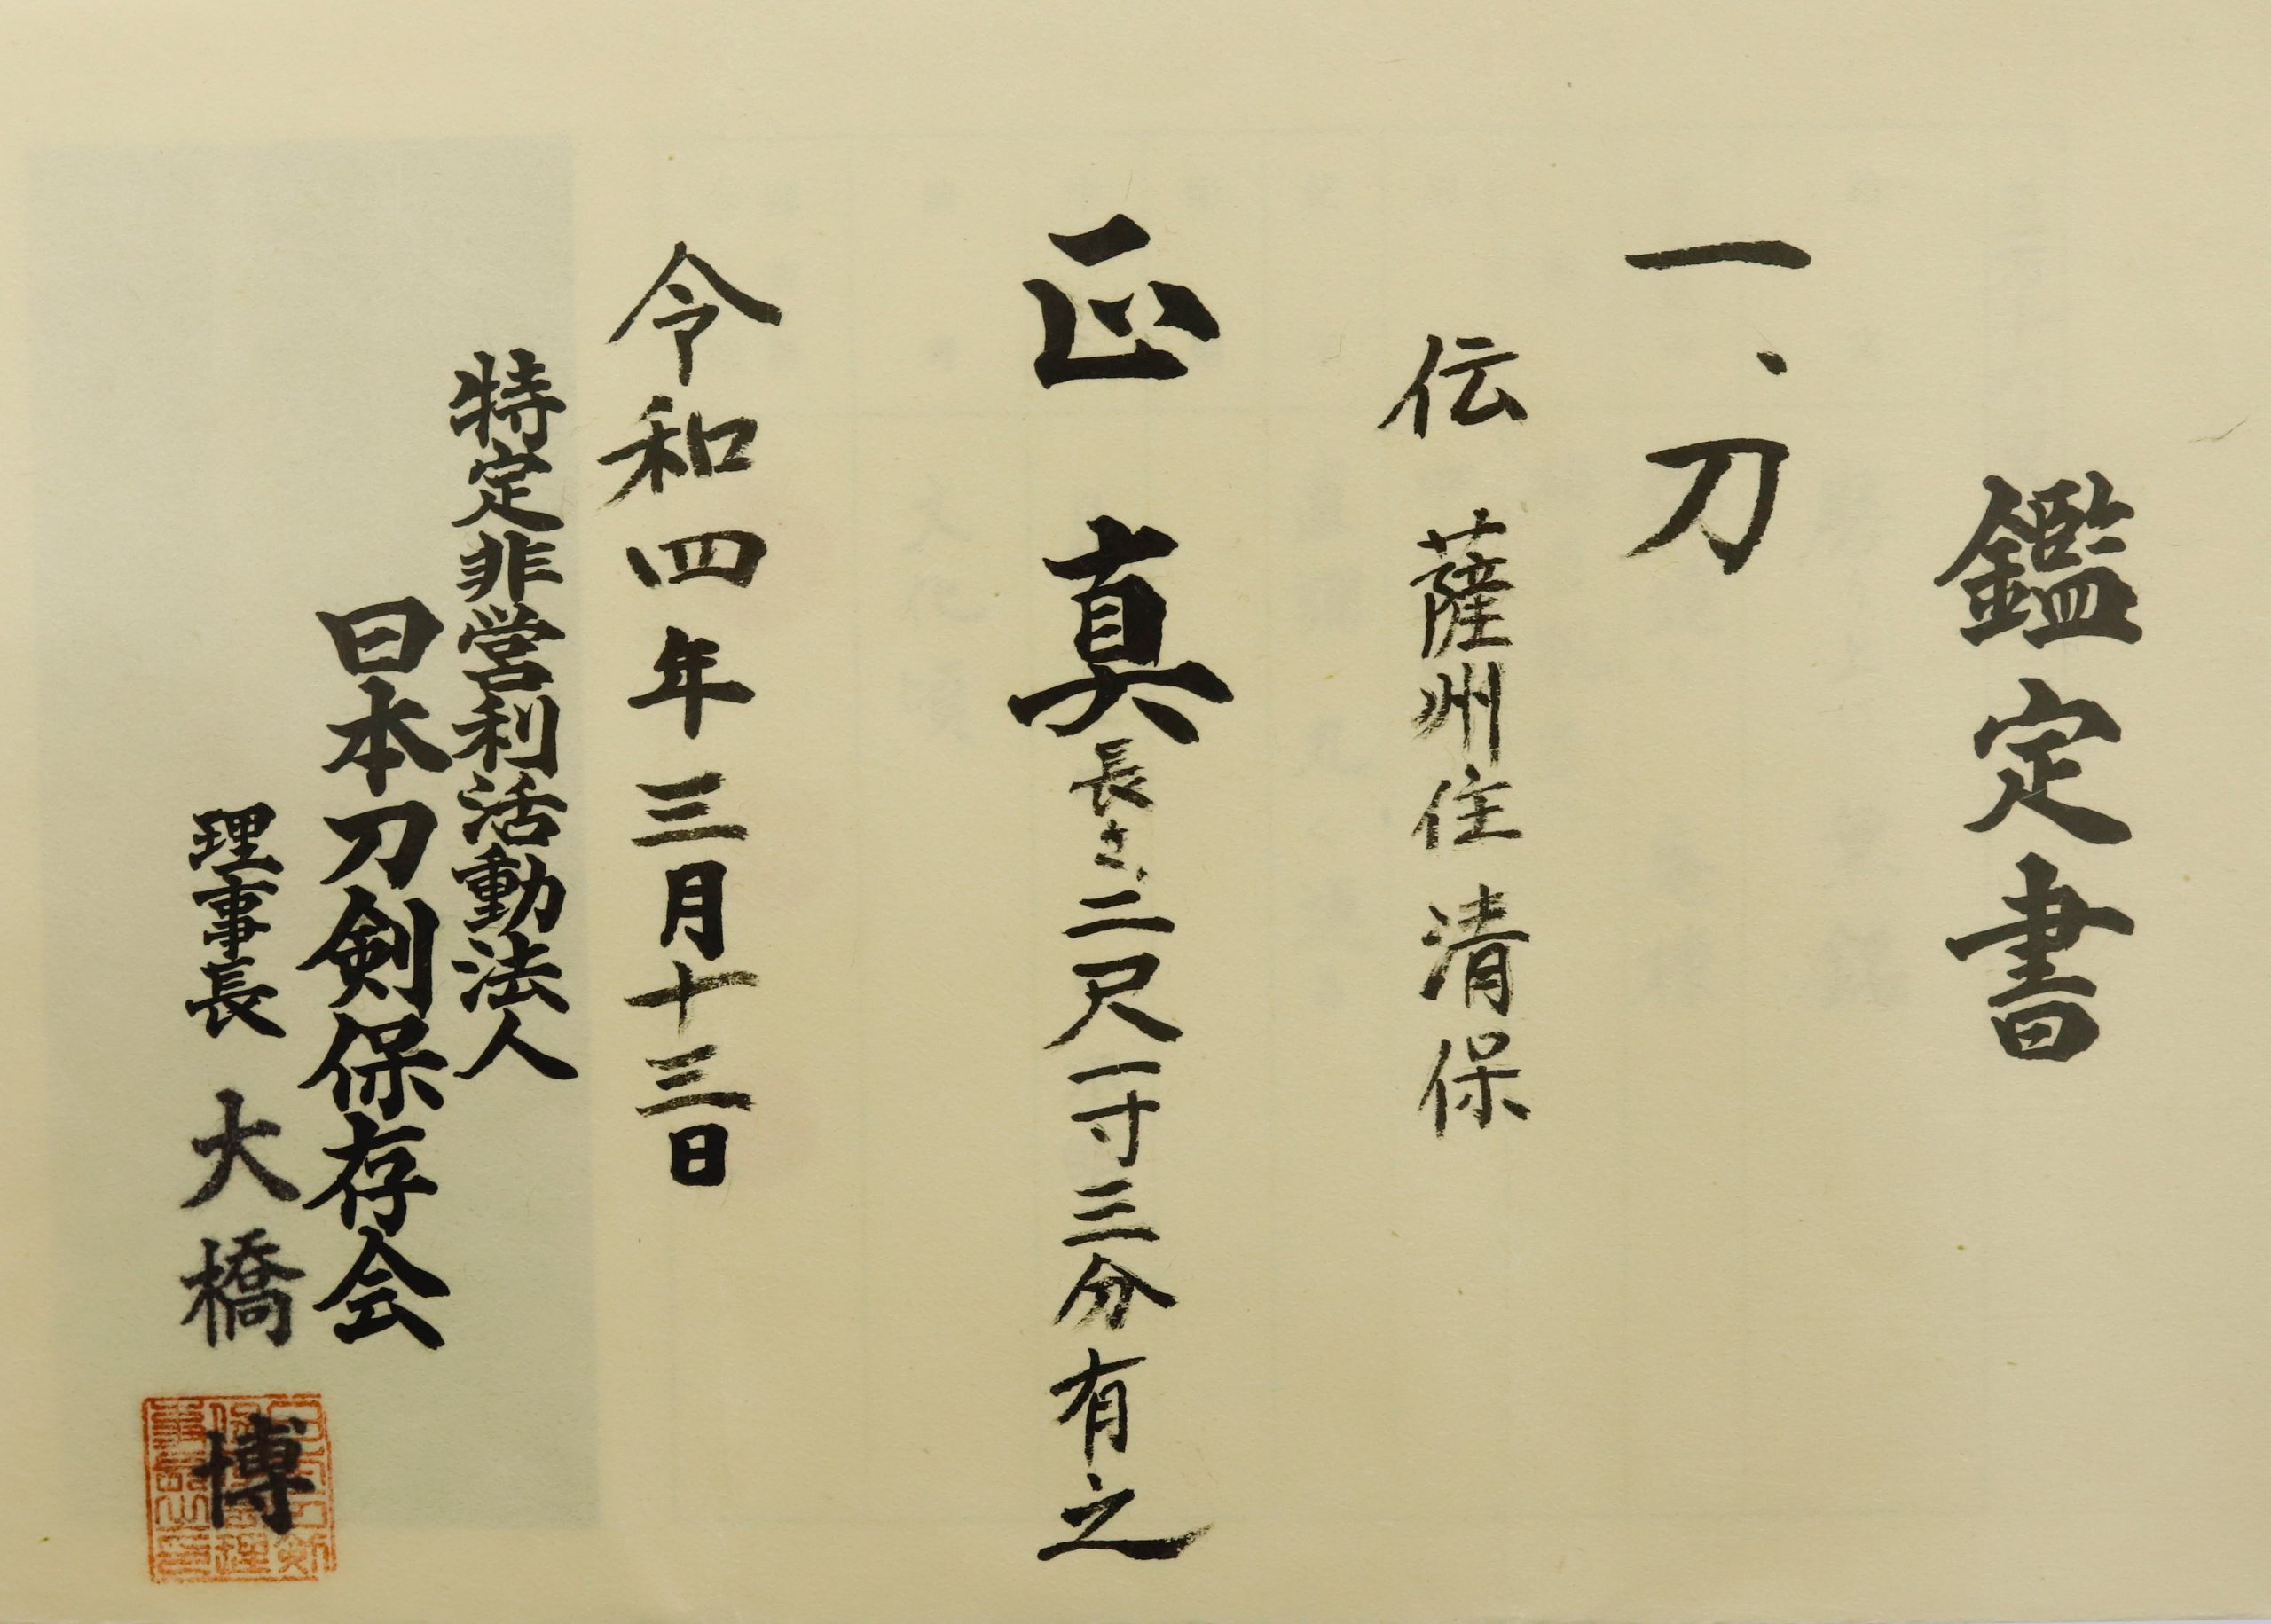 鑑定書
一、刀
伝 薩州住清保
正真 長さ二尺一寸三分有之
令和四年三月十三日
特定非営利活動法人
日本刀剣保存会
理事長 大橋博